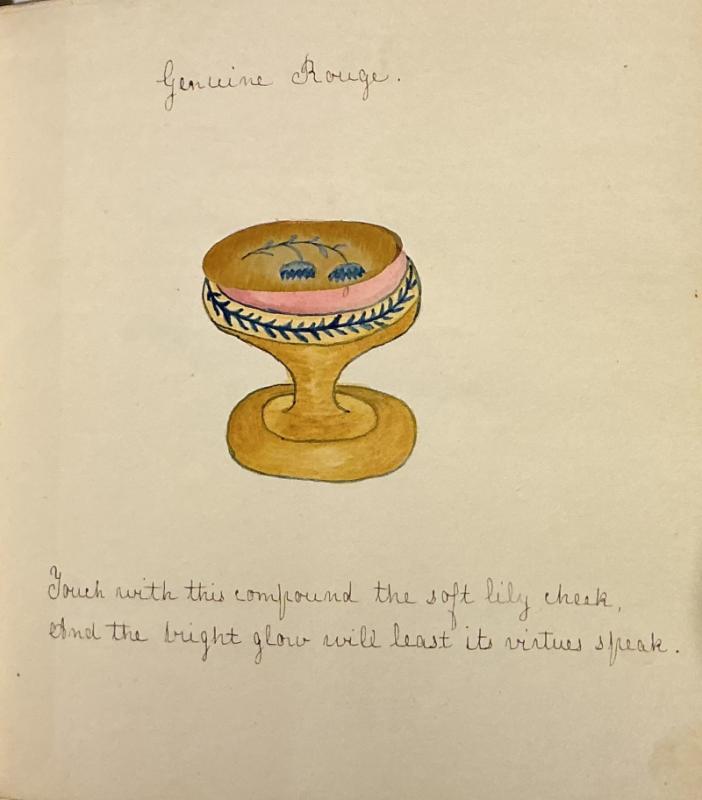 Genuine Rouge.
Touch with this compound the soft lily cheek,
And the bright glow will least its virtues speak.